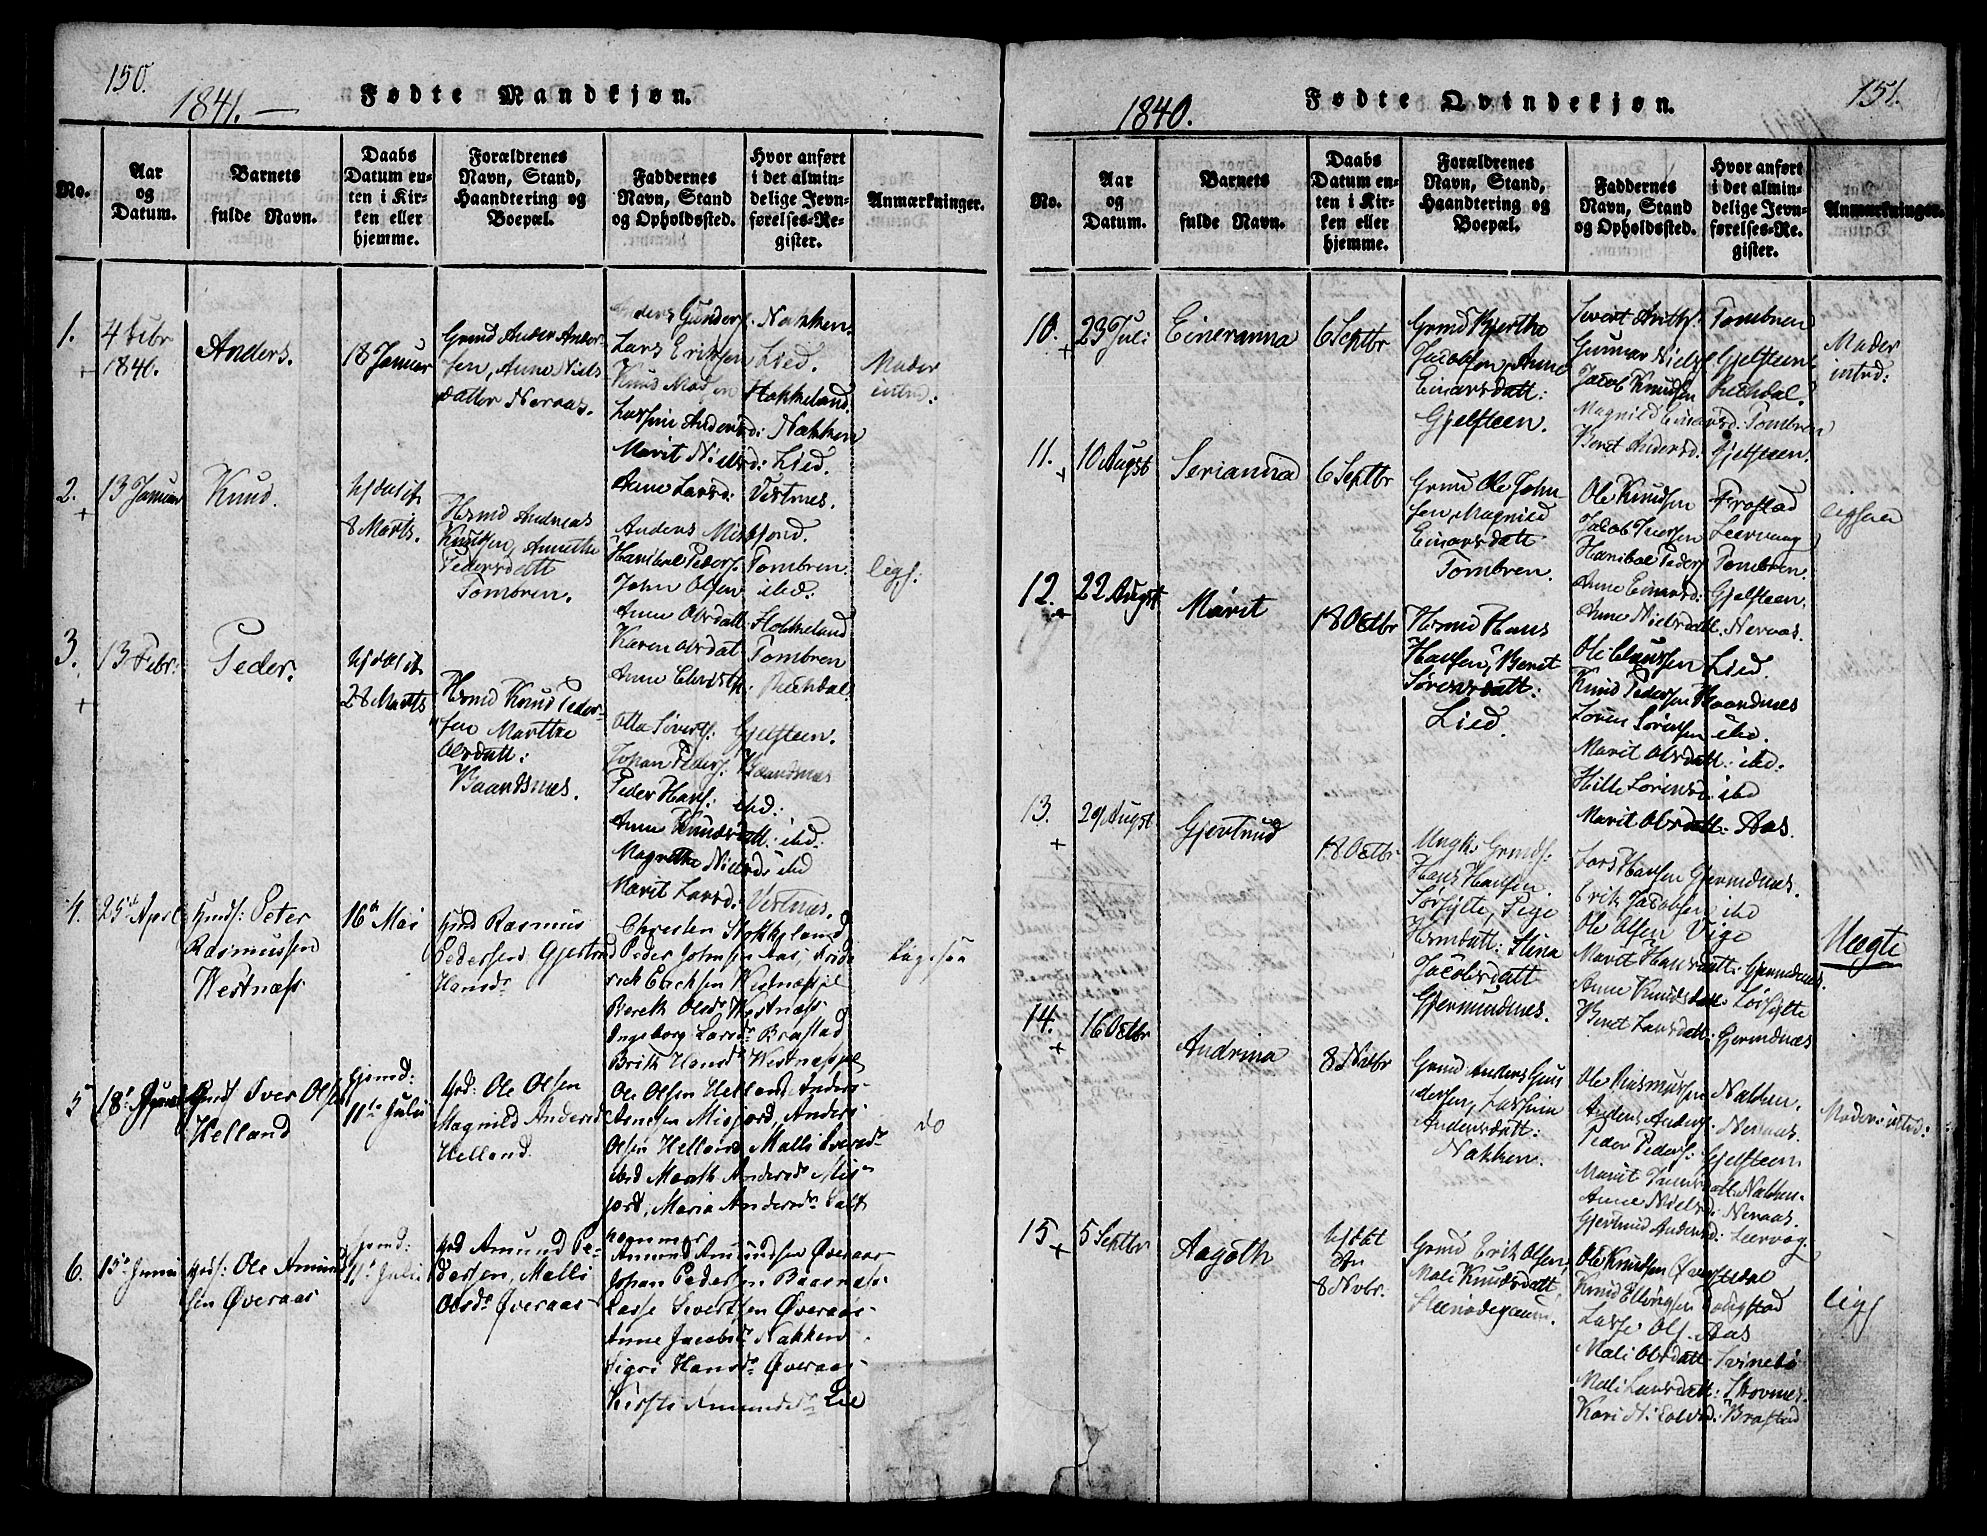 150.
1841.
Fødte Mandkjøn.
No.
Aar
og
Datum.
Barnets
fulde Navn.
Daabs
Datum en-
ten i Kir-
ken eller
hjemme.
Forældrenes
Navn, Stand,
Haandtering og
Boepæl.
Faddernes
Navn, Stand
og Opholdssted.
Hvor anført
i det almin-
delige Jevn-
førelses-Re-
gister.
Anmærkninger.
1.
4 Febr
1840.
Anders.
18 Januar
Grmd Anders Ander-
sen, Anne Niels
datter Neraas.
Anders Gunders. Nakken
Lars Eriksen Lied.
Knud Madsen Stokkeland.
Lassine Andersd: Nakken
Marit Nielsd: Lied.
Anne Larsd: Vestnes.
Moder
introd:
2.
13 Januar
Knud.
hjdøbt
8 Marts.
Hsmd Andreas
Knutsen, Annethe
Pedersdatt
Tombren.
Anders Misfjord.
Hanibal Peders. Tombren.
John Olsen ibd:
Anne Olsdatt: Stokkeland
Karen Olsdat Tombren
Anne Christf: Rechdal
ligs:
3.
13 Febr:
Peder.
hjdøbt
28 Marts
Hsmd Knud Peder-
sen Marthe
Olsdatt:
Baandsnes.
Otto Siverts. Gjelsteen.
Johan Peders: Baandnæs
Peder Hans: ibd:
Anne Knudsdatt: ibd:
Magrethe Nielsd: ibd
Marit Larsd: Vestnæs.
4.
25de April
Gmds: Peter
Rasmussen
Westnæss
16de Mai
Gmd Rasmus
Pedersen Gjertrud
Hansdr
Christen Stokkeland
Peder Johnsen Aas, Fride
rich Erichsen Westnæspl
Bereth Olsdr Westnæss
Ingeborg Larsdr Brastad
Brith Hansdr Westnæspl
5
18de
Gmds Iver Olsen
Helland
hjemd:
11te Julii
Grd: Ole Olsen
Magnild Andersd
Helland
Ole Olsen Helland, Anders
Arntsen Misfjord, Anders
Olsen Helland Malli Iversdr
ibd Marth Andersdr Mis-
fjord, Maria Andersdr Salt
hammer
do
6.
15de Junii
Grds: Ole Amund
sen Øveraas
hjemd:
11te Julii
Grd Amund Pe-
dersen, Malli
Olsdr Øveraas
Amund Amundsen Øveraas
Johan Pedersen Baasnæs-
Lasse Sivertsen Øveraas-
Anne Jacobsdr Nakken
Sigri Hansdr Øveraas-
Kirsti Amundsdr Lie
151.
1840.
Fødte Qvindekjøn.
No.
Aar
og
Datum.
Barnets
fulde Navn.
Daabs
Datum en-
ten i Kir-
ken eller
hjemme.
Forældrenes
Navn, Stand,
Haandtering og
Boepæl.
Faddernes
Navn, Stand
og Opholdssted.
Hvor anført
i det almin-
delige Jevn-
førelses-Re-
gister.
Anmærkninger.
10.
23 Juli
Eineranna
6 Septbr
Grmd Bjerthe
Jacobsen, Anne
Einarsdatt:
Gjelsteen.
Sivert Arnths. Tombren
Gunnar Niels. Gjelsteen
Jacob Knudsen Rechdal.
Magnild Einarsd. Tombren
Beret Andersd. Gjelsteen.
Moder
introd:
11.
10 Augst
Serianna
6 Septbr
Grmd Ole John
sen, Magnild
Einarsdatt
Tombren.
Ole Knudsen Frostad
Jacob Iversen Leervaag
Hanibal Peders Tombren.
Anne Einarsd: Gjelsteen.
Anne Nielsdatt. Neraas.
ligesaa
12.
22 Augst
Marit
18 Octbr
Hsmd Hans
Hansen, Beret
Sørensdatt:
Lied.
Ole Clausen Lied.
Knud Pedersen Baandnes
Søren Sørensen ibd.
Marit Olsdatt: ibd:
Hille Sørensd: ibd
Marit Olsdatt: Aas.
13.
29 Augst
Gjertrud
18 Octbr
Ungk: Grmds:
Hans Hansen.
Sørsylte, Pige
Hsmdatt: Stina
Jacobsdatt
Gjermundnes.
Lars Hansen Gjermdnes.
Erik Jacobsen ibd
Ole Olsen Vige
Marit Hansdatt: Gjermdnes.
Anne Knudsdatt: Sørsylte
Beret Larsdatt: Gjermdnæs
Uægte
14.
16 Octbr
Andrina
8 Novbr
Grmd Anders Gun
dersen, Lassine
Andersdatt:
Nakken.
Ole Rasmussen Nakken.
Anders Anders: Neraas.
Peder Peders: Gjelsteen
Anne Nielsd: Neraas.
Gjertrud Andersd: Leervog.
Moder introd:
15
5 Septbr
Aagoth
hjdøbt
8 Novbr.
Grmd Erik Olsen,
Mali Knudsdatt.
Ole Knudsen Øverstedal
Knud Ellingsen
Lasse Ols. Aas
Mali Olsdatt Svinebø
Mali Larsdatt: Skovnes.
Kari Nielsd: Brastad
ligs